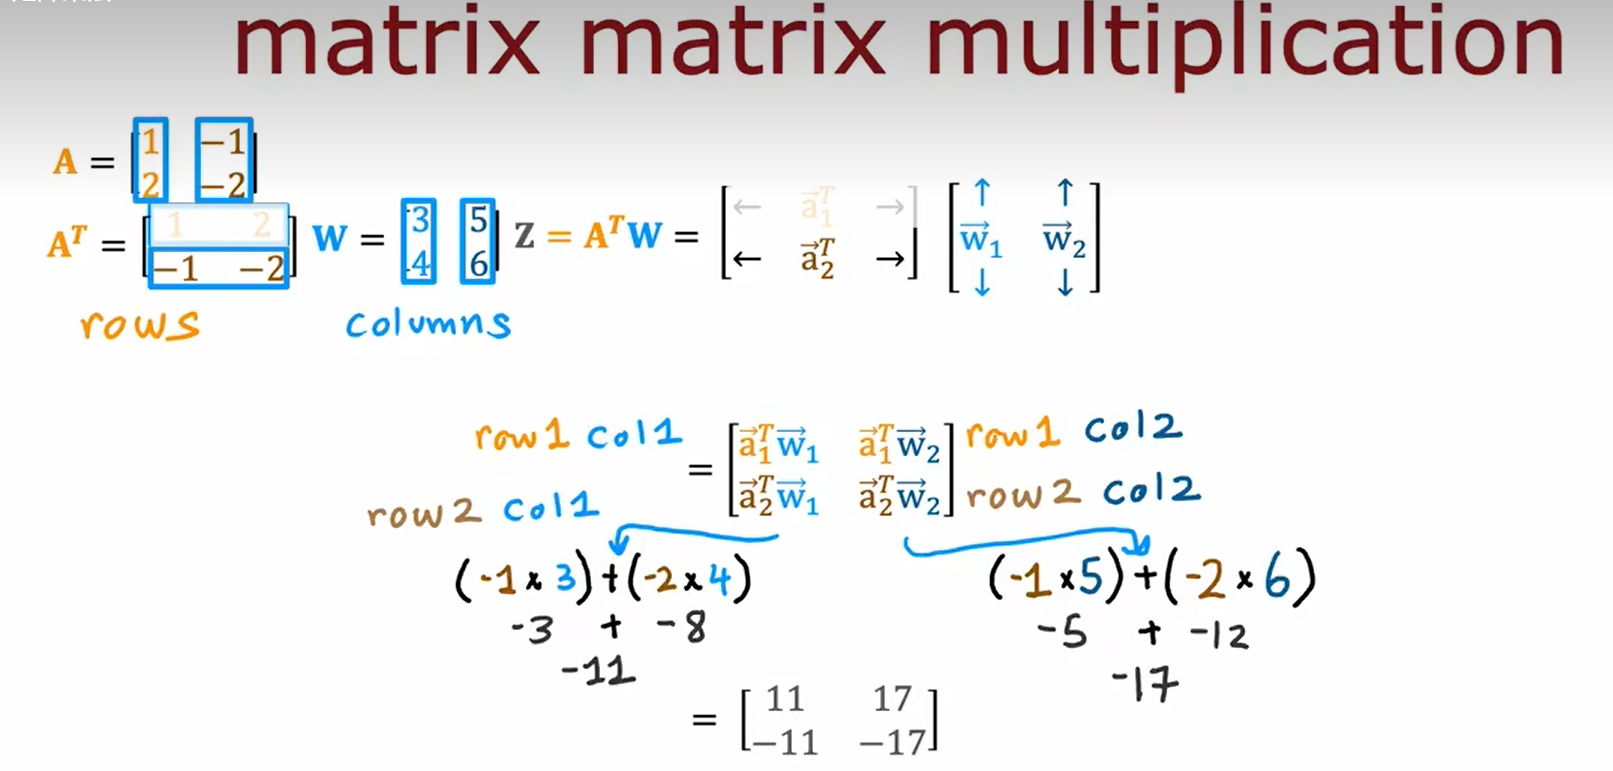 matrix matrix multiplication
A = [1 −1
2 −2]
Aᵀ = [1 2
−1 −2] W = [3 5
4 6] Z = AᵀW = [← a⃗₁ᵀ →
← a⃗₂ᵀ →] [↑ ↑
w⃗₁ w⃗₂
↓ ↓]
rows columns
row1 col1 = [a⃗₁ᵀw⃗₁ a⃗₁ᵀw⃗₂] row1 col2
row2 col1 [a⃗₂ᵀw⃗₁ a⃗₂ᵀw⃗₂] row2 col2
(-1×3)+(-2×4) (-1×5)+(-2×6)
-3 + -8 -5 + -12
-11 -17
= [11 17
−11 −17]